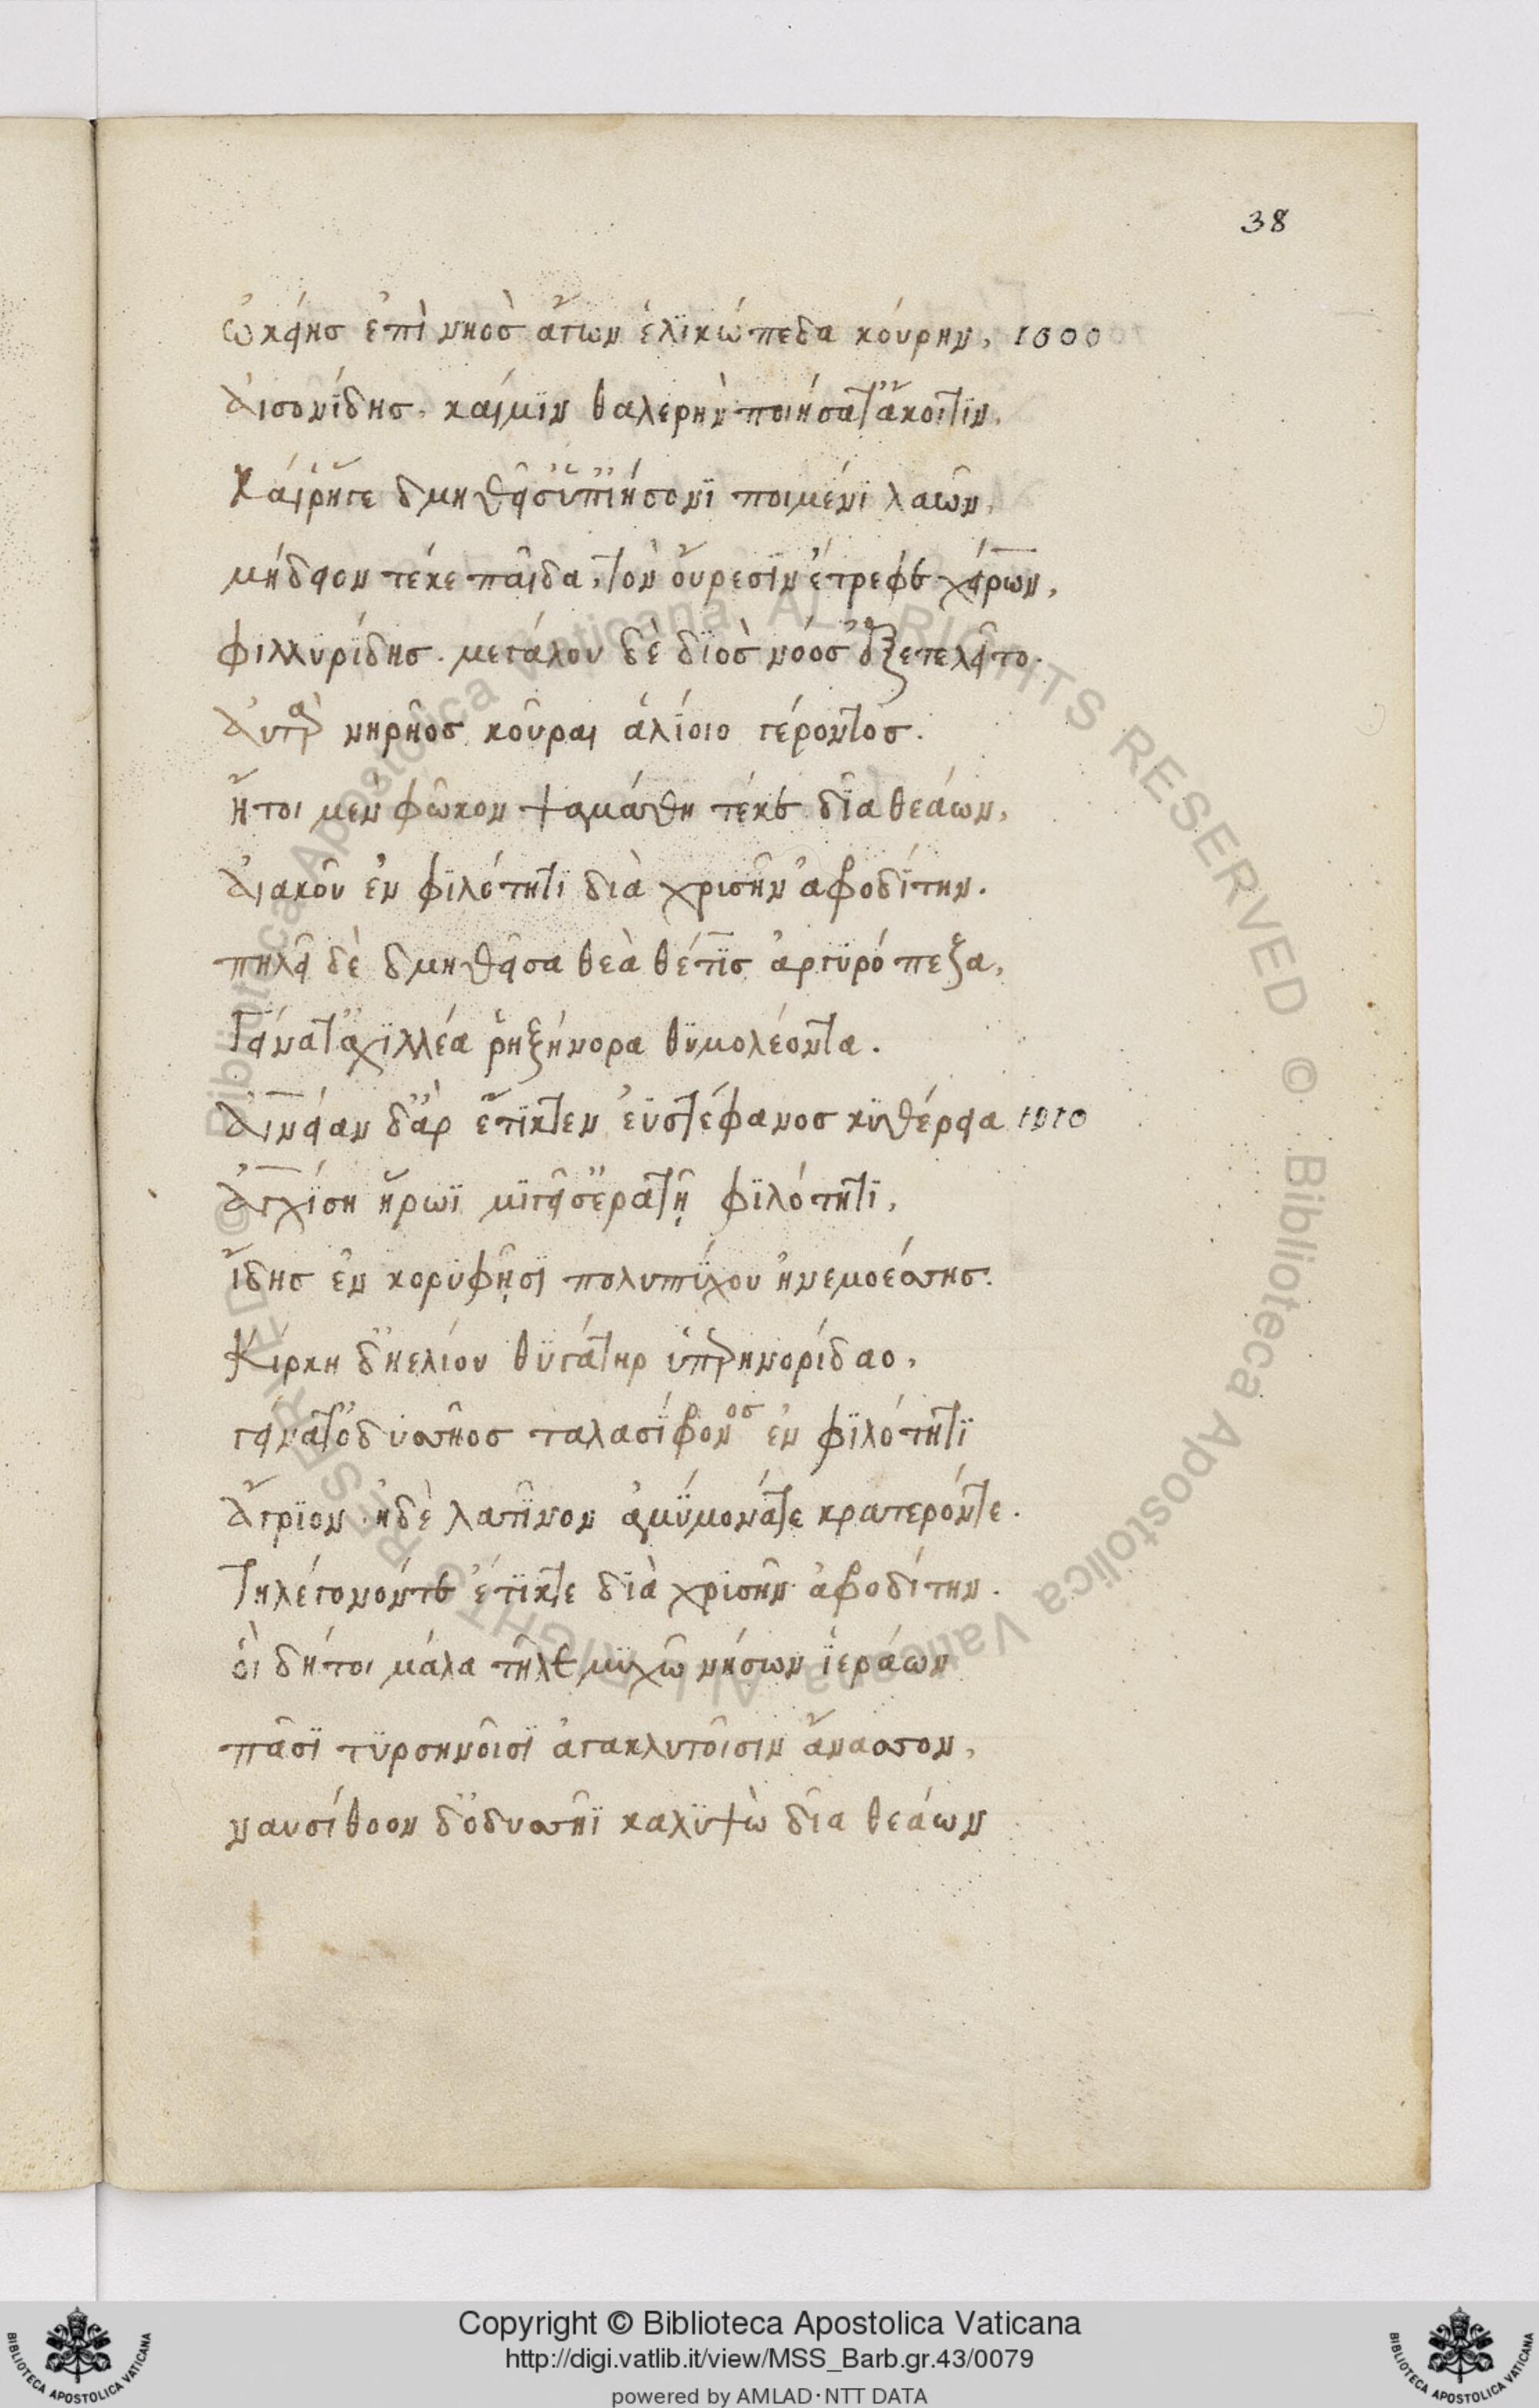 38
ὠκείησ ἐπὶ νηὸσ ἄγων ἑλϊκώπεδα κούρην, 1000
ἀισονΐδησ. καίμϊν θαλερὴν ποιήσατ' ἄκοιτϊν.
Κάι ῥ' ἥγε δμηθεῖσ' ὑπ' ϊήσονϊ ποιμένϊ λαῶν,
μήδειον τέκε παῖδα, τὸν οὔρεσϊν ἔτρεφε χείρων,
φιλλυρΐδησ. μεγάλου δὲ δϊὸσ νόοσ ἐξετελεῖτο.
Ἀυτὰρ νηρῆοσ κοῦραι ἁλίοιο γέροντοσ.
ἤτοι μὲν φῶκον ψαμάθη τέκε δῖα θεάων,
ἀιακοῦ ἐν φϊλότητϊ διὰ χρισῆν ἀφροδίτην.
πηλεῖ δὲ δμηθεῖσα θεὰ θέτϊσ ἀργϋρόπεζα,
Γείνατ' ἀχϊλλέα ῥηξήνορα θϋμολέοντα.
Ἀινείαν δ' ἄρ ἔτϊκτεν ἐϋστέφανοσ κϋθέρεια 1010
Ἀγχίση ἥρωϊ μϊγεῖσ' ἐρατῇ φϊλότητϊ,
ἴδησ ἐν κορυφῇσϊ πολυπτύχου ἠνεμοέσσησ.
Κίρκη δ' ἠελίου θϋγάτηρ ὑπερηνορίδαο,
γείνατ' ὀδυσσῆοσ ταλασίφρονοσ ἐν φϊλότητϊ
Ἄγρϊον ἠδὲ λατῖνον ἀμύμονάτε κρατερόντε.
Τηλέγονόντε ἔτϊκτε δϊὰ χρϊσῆν ἀφροδίτην.
ὁι δήτοι μάλα τῆλε μϋχῶ νήσων ϊεράων
πᾶσϊ τϋρσηνοῖσϊ ἀγακλυτοῖσιν ἄνασσον,
ναυσίθοον δ' ὀδυσσῆϊ καλϋψὼ δῖα θεάων
Copyright © Biblioteca Apostolica Vaticana
http://digi.vatlib.it/view/MSS_Barb.gr.43/0079
powered by AMLAD·NTT DATA